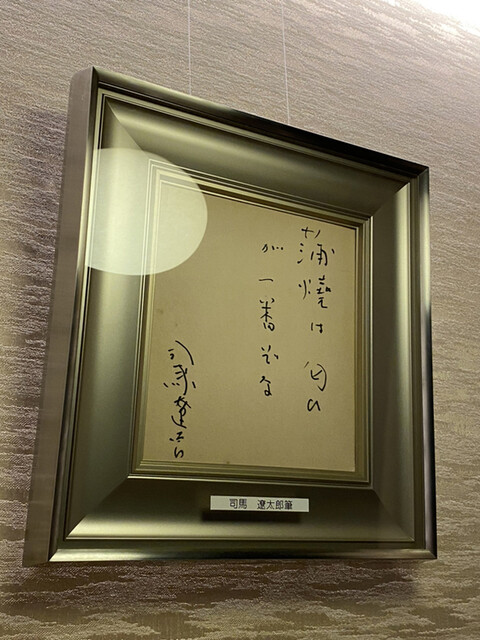 蒲焼は匂い
が一番だな
司馬遼太郎
司馬 遼太郎筆